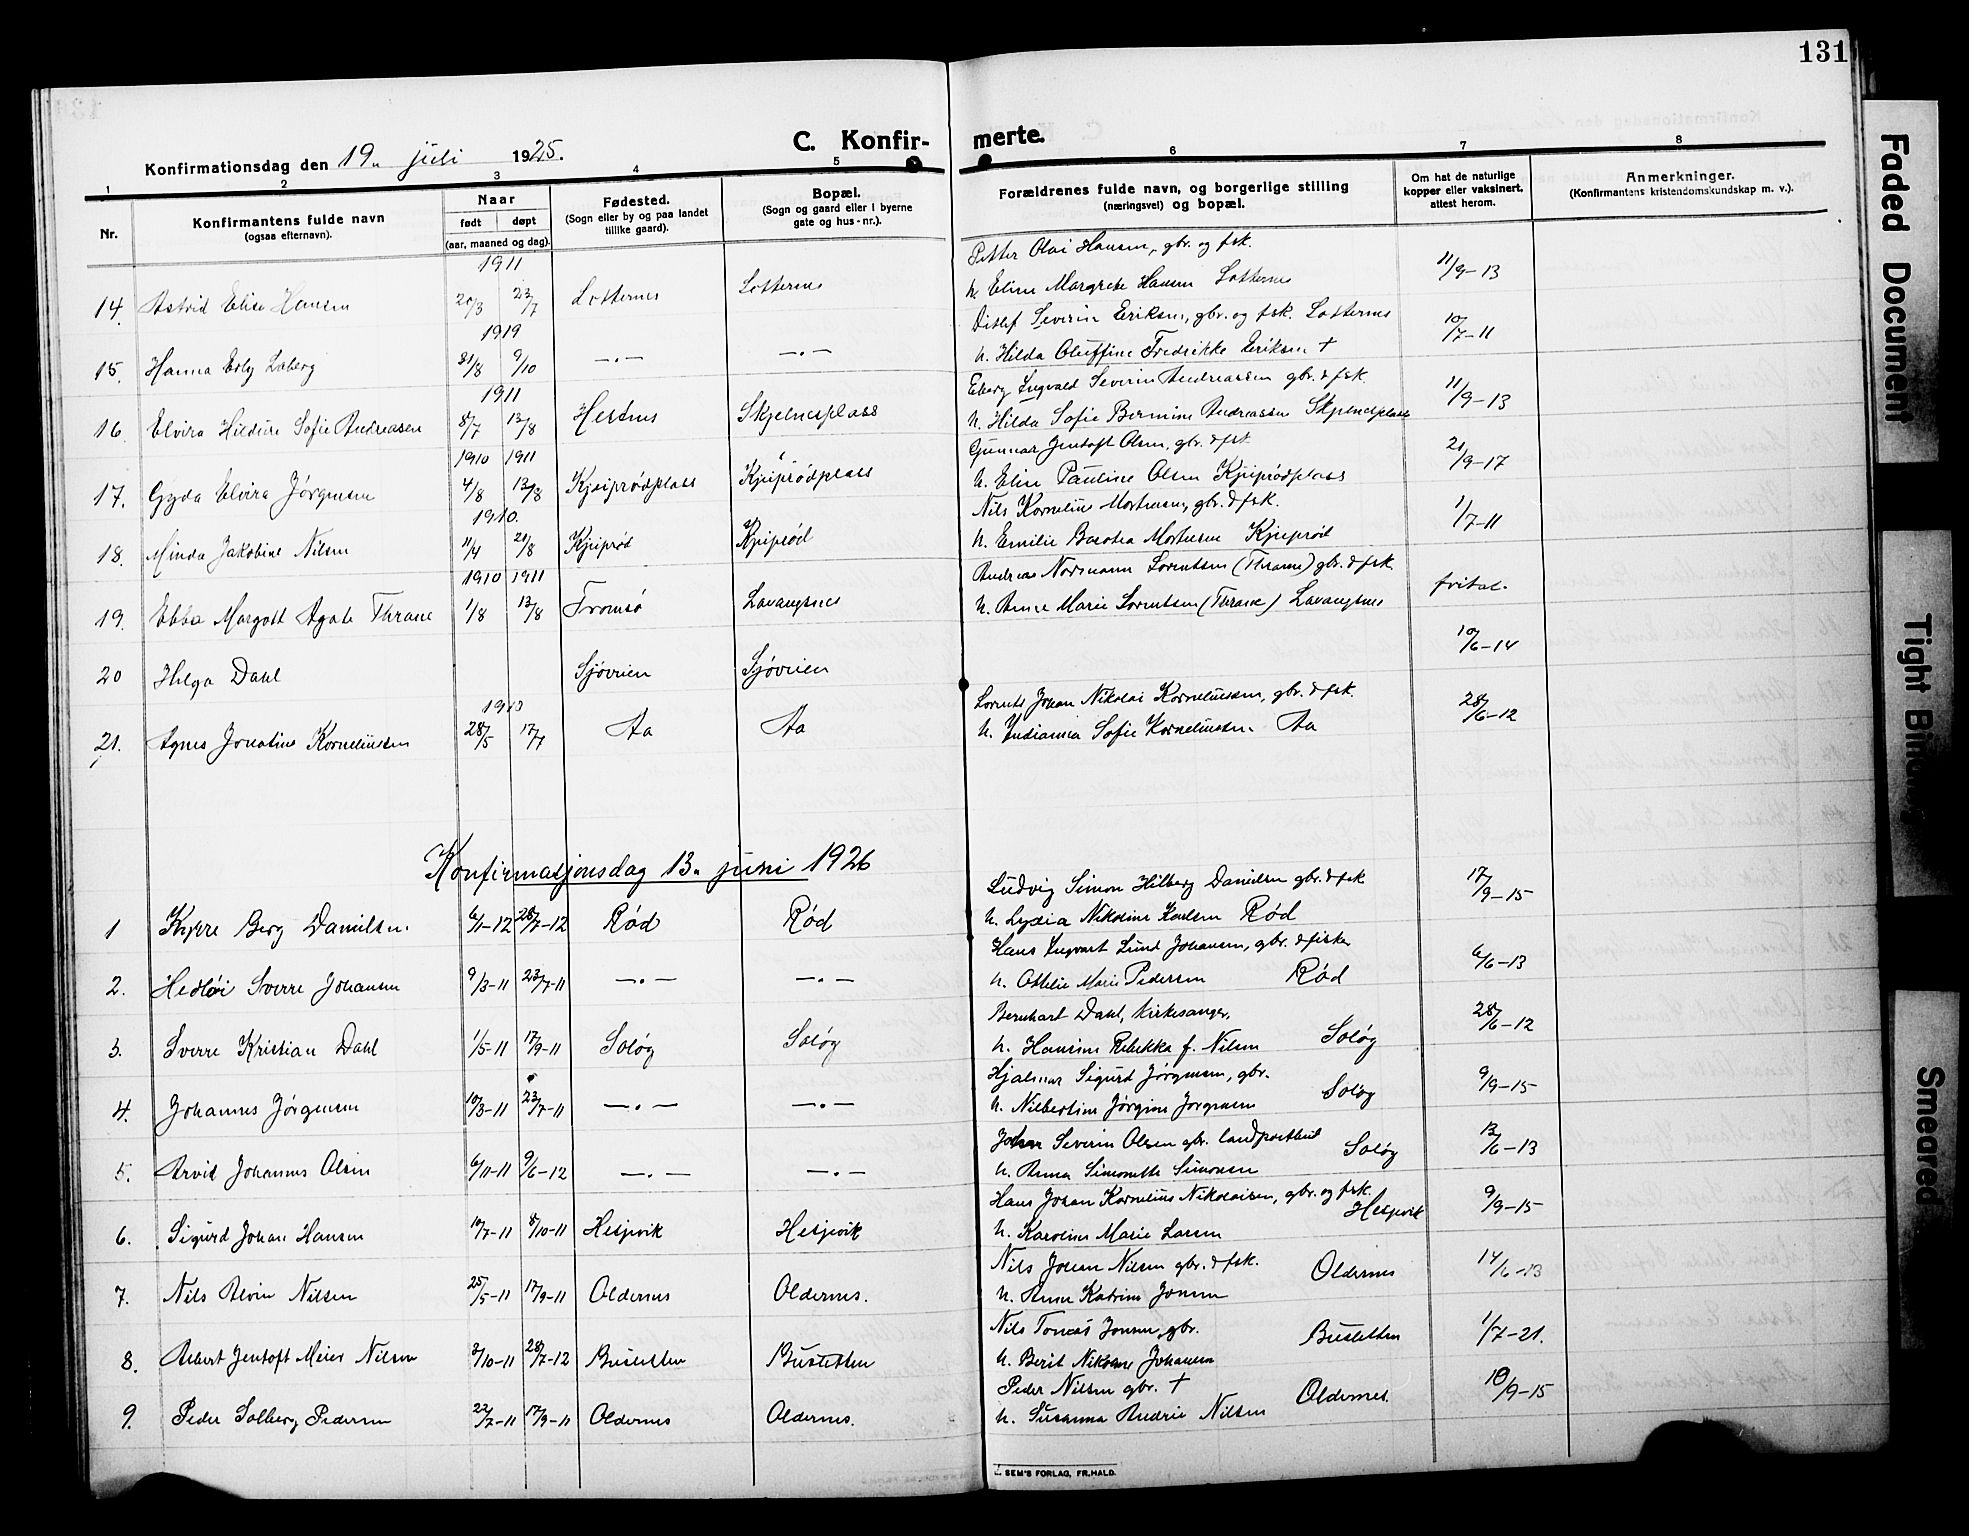 131
C. Konfirmerte.
Konfirmationsdag den 19. juli 1925.
1 2 3 4 5 6 7 8
Nr.
Konfirmantens fulde navn
(ogsaa efternavn).
Naar
født døpt
(aar, maaned og dag).
Fødested.
(Sogn eller by og paa landet
tillike gaard).
Bopæl.
(Sogn og gaard eller i byerne
gate og hus-nr.).
Forældrenes fulde navn, og borgerlige stilling
(næringsvei) og bopæl.
Om hat de naturlige
kopper eller vaksinert,
attest herom.
Anmerkninger.
(Konfirmantens kristendomskundskap m. v.).
1911 Petter Olai Hansen, gbr. og fsk.
14. Astrid Elise Hansen 20/3 23/7 Lotternes Lotternes u. Eline Margrete Hansen Lotternes 11/9-13
1919 Ditlef Severin Eriksen, gbr. og fsk. Lotternes
15. Hanna Erly Loberg 31/8 9/10 —〃— —〃— u. Hilda Oluffine Fredrikke Eriksen † 10/7-11
1911 Ingvald Severin Andreassen gbr. & fsk.
16. Elvira Hildure Sofie Andreasen 8/7 13/8 Hestnes Skjelnesplass u. Hilda Sofie Bermine Andreassen Skjelnesplass 11/9-13
1910 1911 Gunnar Jentoft Olsen, gbr. & fsk.
17. Gyda Elvira Jørgensen 4/8 13/8 Kjeiprødplass Kjeiprødplass u. Elise Pauline Olsen Kjeiprødplass 21/9-17
1910. Nils Kornelius Mortensen, gbr. & fsk.
18. Minda Jakobine Nilsen 11/4 21/8 Kjeiprød Kjeiprød u. Emilie Mortensen Kjeiprød 1/7-11
1910 1911 Andreas Normann Lorentsen (Thrane) gbr. & fsk.
19. Ebba Margott Agate Thrane 1/8 13/8 Tromsø Lavangsnes u. Anne Marie Lorentsen (Thrane) Lavangsnes fritat.
20 Helga Dahl Sjøveien Sjøveien 10/6-14
1910 Lorents Johan Nikolai Korneliussen, gbr. & fsk.
21. Agnes Jonatine Korneliussen 28/5 17/7 Aa Aa u. Indianna Sofie Korneliussen. Aa 28/6-12
Konfirmasjonsdag 13. juni 1926
Ludvig Simon Hilberg Danielsen gbr. & fsk
1 Kyrre Berg Danielsen. 6/1-12 28/7-12 Rød Rød u. Lydia Nikoline Karlsen Rød 17/9-15
Hans Ingvart Lund Johansen, gbr. & fisker
2. Hedløi Sverre Johansen 9/3-11 23/7-11 —〃— —〃— u. Ottilie Marie Pedersen Rød 6/6-13
Bernhart Dahl, kirkesanger,
3. Sverre Kristian Dahl 1/5-11 17/9-11 Soløy Soløy u. Hansine Rebekka f. Nilsen Soløy 28/6-12
Hjalmar Sigurd Jørgensen, gbr.
4. Johannes Jørgensen 10/3-11 23/7-11 —〃— —〃— u. Nilbertine Jørgine Jørgensen Soløy 9/9-15
Johan Severin Olsen gbr. landpostbud
5. Arvid Johannes Olsen 6/11-11 9/6-12 —〃— —〃— u. Anna Simonette Simonsen Soløy 13/6-13
Hans Johan Kornelius Nikolaisen, gbr. og fsk.
6. Sigurd Johan Hansen 10/7-11 8/10-11 Hesjevik Hesjevik u. Karoline Marie Larsen Hesjevik 9/9-15
Nils Johan Nilsen gbr. & fsk.
7. Nils Alvin Nilsen 25/5-11 17/9-11 Oldernes Oldernes. u. Anne Katrine Jonsen Oldernes 14/6-13
Nils Tomas Jonsen, gbr.
8. Albert Jentoft Meier Nilsen 3/10-11 28/7-12 Busletten Busletten u. Berit Nikoline Johansen Busletten 1/7-21.
Peder Nilsen gbr. †
9. Peder Solberg Pedersen 22/7-11 17/9-11 Oldernes Oldernes. u. Susanna Andrie Nilsen Oldernes. 10/9-15
SEM'S FORLAG, FR.HALD.
Faded Document
Tight Binding
Smeared